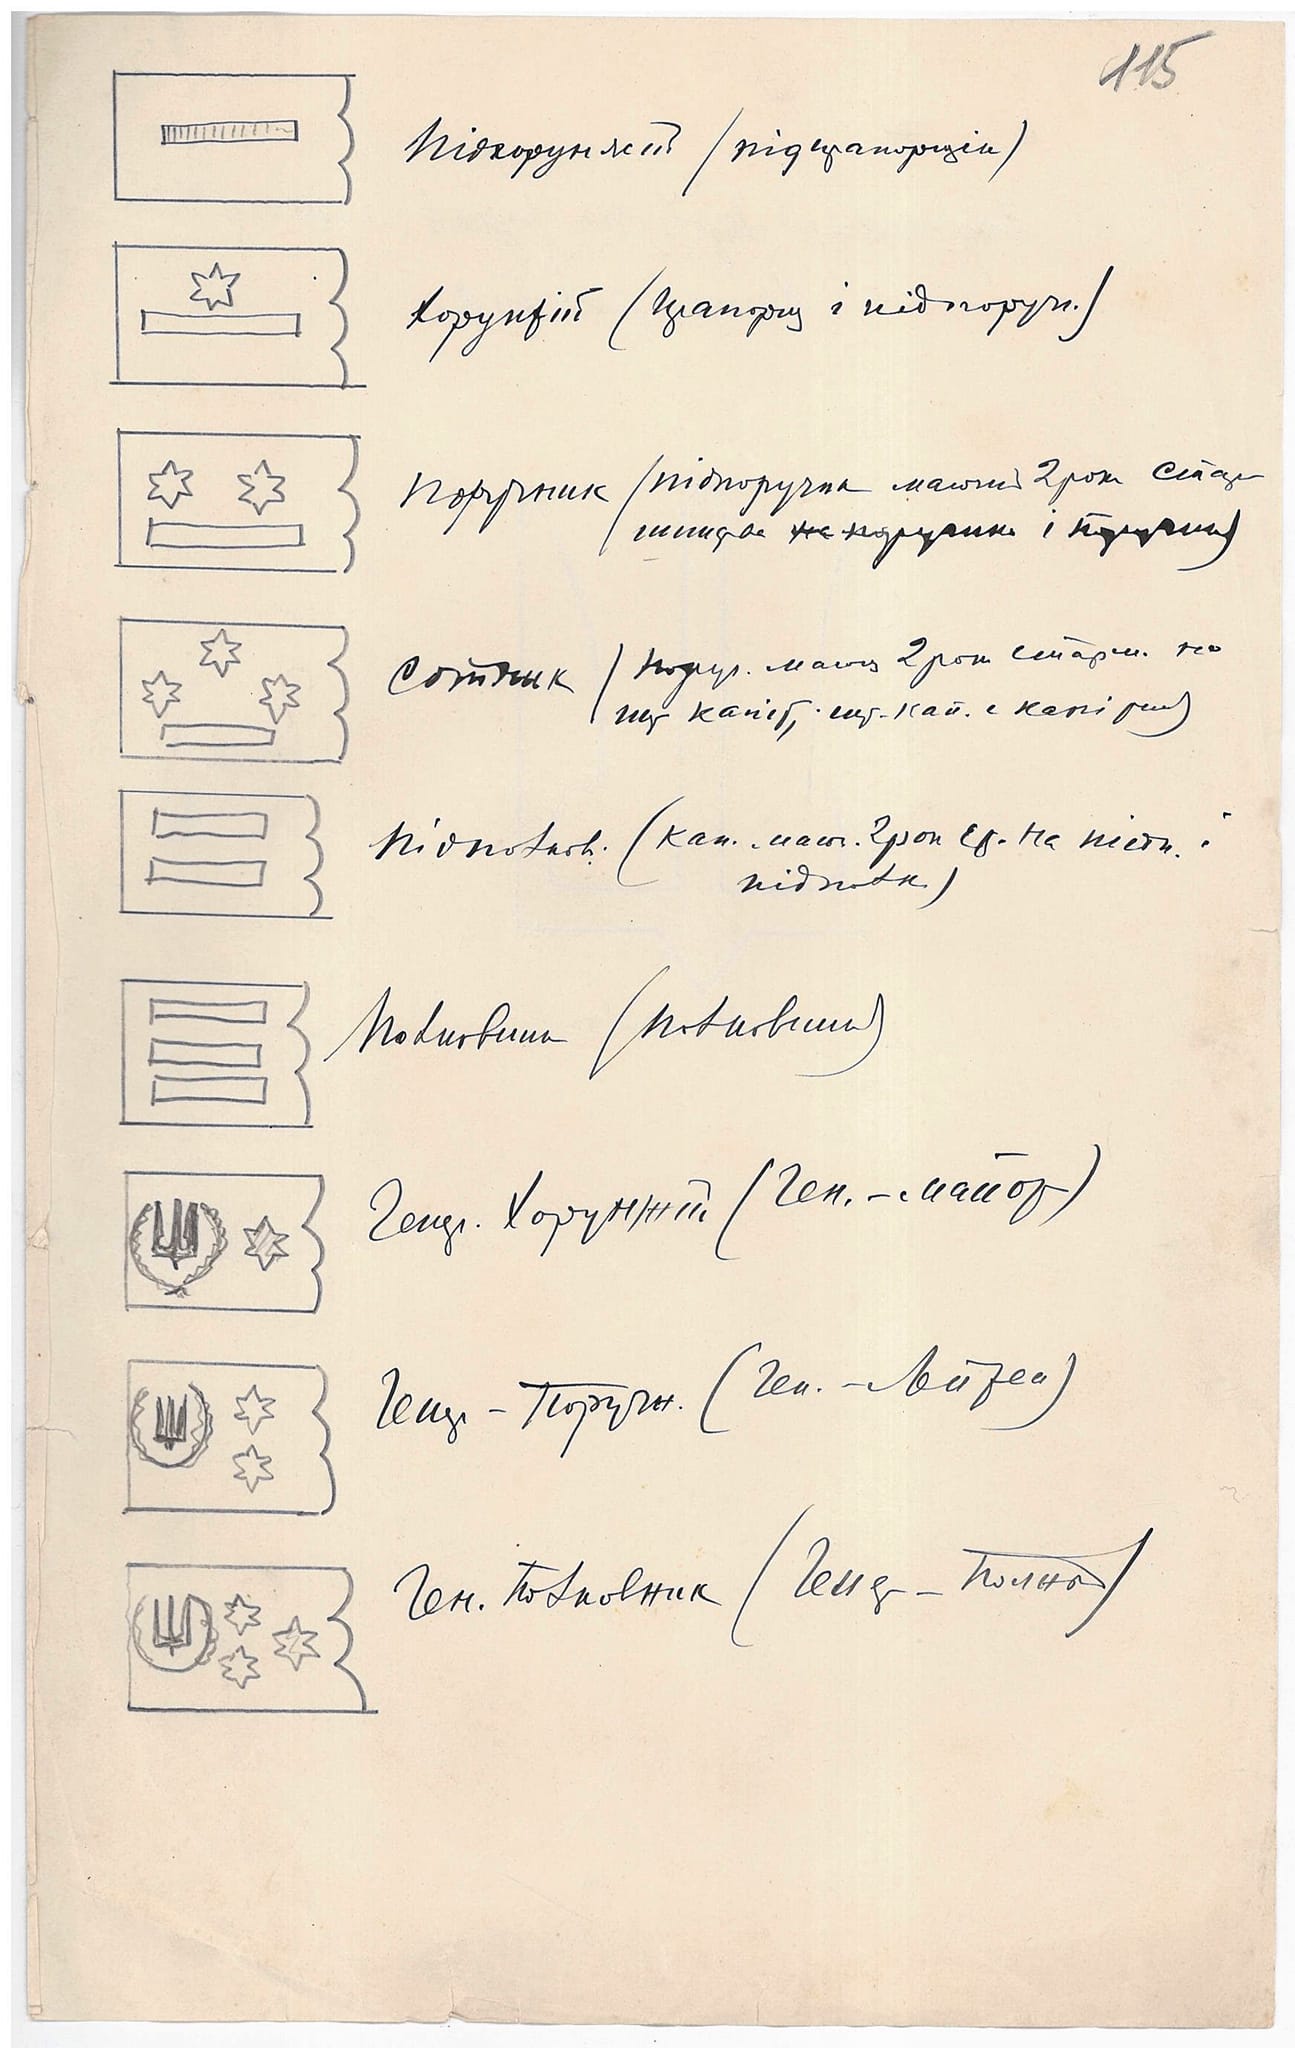 115
Підхорунжий (підпрапорщик)
Хорунжий (Прапорщ і підпоруч.)
Поручник (підпоручик маючий 2 рок старш
і
Сотник (Поруч. маюч 2 рок старш. на
шт капіт, шт-кап. і капітан)
Підполков. (кап. маюч. 2 рок ст. на підп. і
підполк)
Полковник (Полковник)
Генер. Хорунжій (Ген. - майор)
Генер - Поручн. (Ген. - Лейтен)
Ген. Полковник (Генер - Полний)